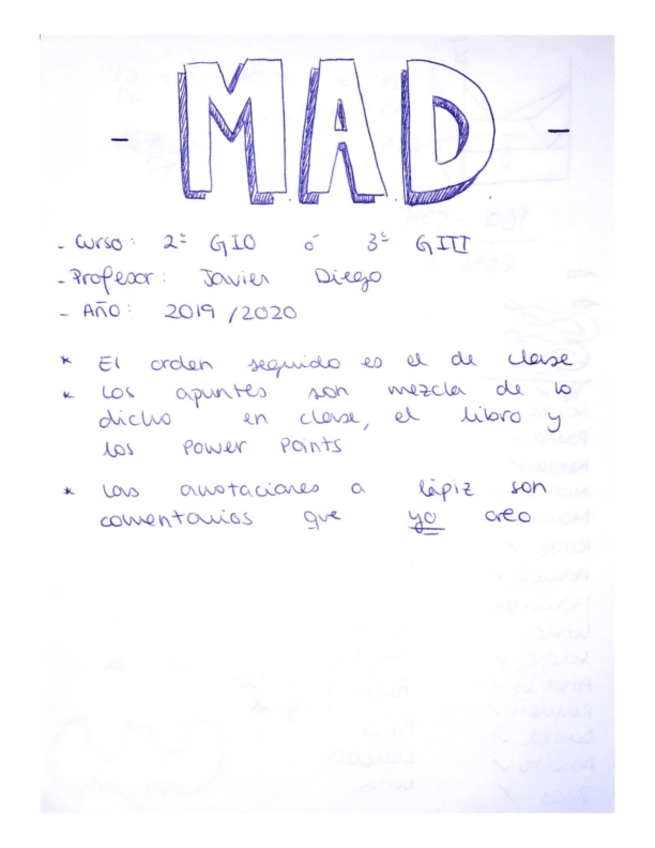 - MAD -
- Curso: 2º GIO ó 3º GIII
- Profesor: Javier Diego
- Año: 2019/2020
* El orden seguido es el de clase
* Los apuntes son mezcla de lo
dicho en clase, el libro y
los Power Points
* Las anotaciones a lápiz son
comentarios que yo creo